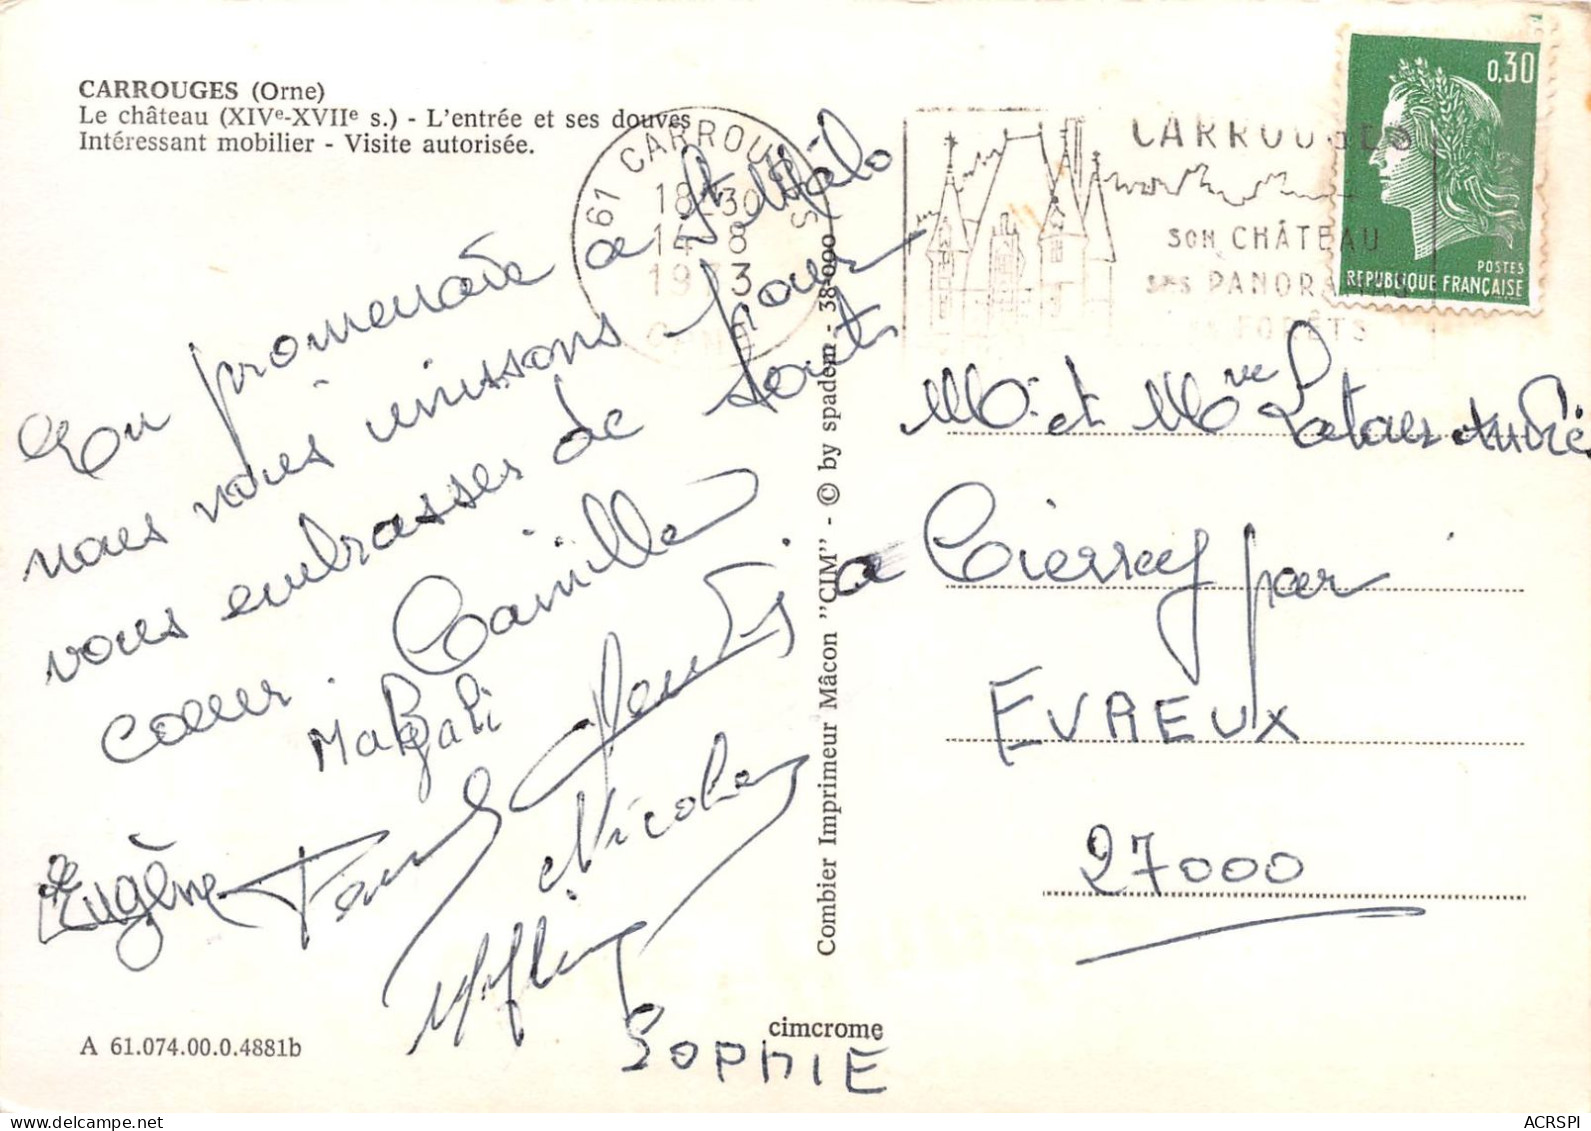 CARROUGES (Orne)
Le château (XIVe-XVIIe s.) - L'entrée et ses douves
Intéressant mobilier - Visite autorisée.
61 CARROUGES
18H30
14-8
1973
ORNE
CARROUGES
SON CHÂTEAU
SES PANORAMAS
FORÊTS
0,30
POSTES
REPUBLIQUE FRANÇAISE
En promenade a St Malo
nous nous unissons pour
vous embrasser de tout
coeur. Camille
Magali
Eugène Paul
Nicole
SOPHIE
Mr et Mme André
a Cierrey par
EVREUX
27000
Combier Imprimeur Mâcon "CIM" - © by spadem - 38-000
A 61.074.00.0.4881b
cimcrome
www.delcampe.net
ACRSPI